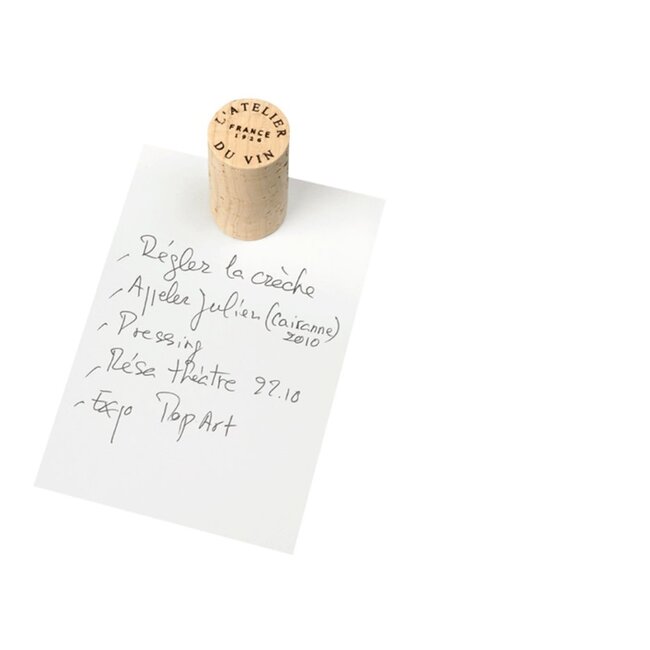 L'ATELIER
FRANCE
1926
DU VIN
- Régler la crèche
- Appeler Julien (Cairanne)
2010
- Pressing
- Résa théâtre 22.10
- Expo Pop Art